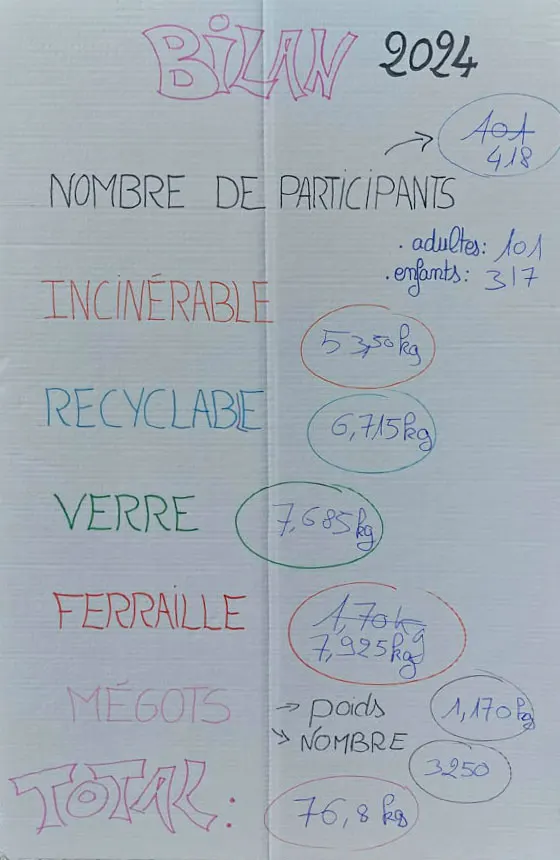 BiLAN 2024
101
418
NOMBRE DE PARTiCiPANTS
. adultes: 101
. enfants: 317
INCiNÉRABLE
53,50 kg
RECYCLABLE
6,715 kg
VERRE
7,685 kg
FERRAiLLE
1,70 k
7,925 kg
MÉGOTS → poids 1,170 kg
→ NOMBRE 3250
TOTAL: 76,8 kg